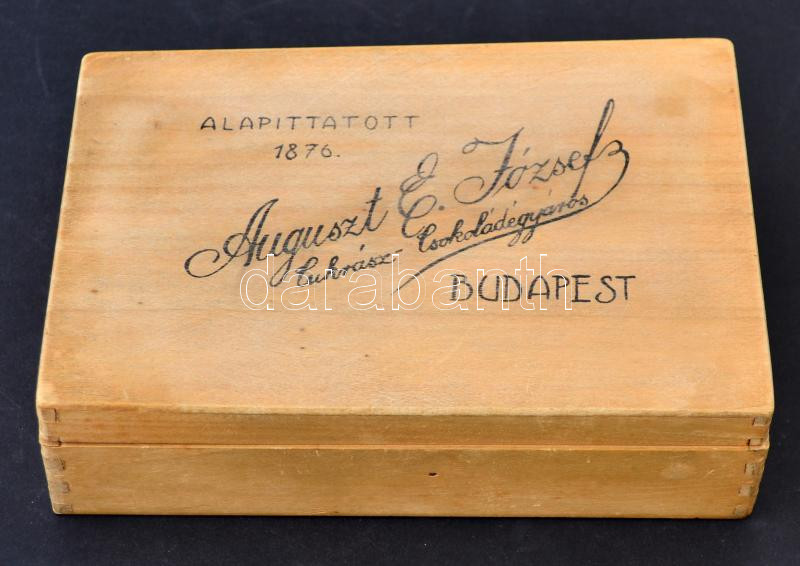 ALAPITTATOTT
1876.
Auguszt E. József
Cukrász- Csokoládégyáros
BUDAPEST
darabanth